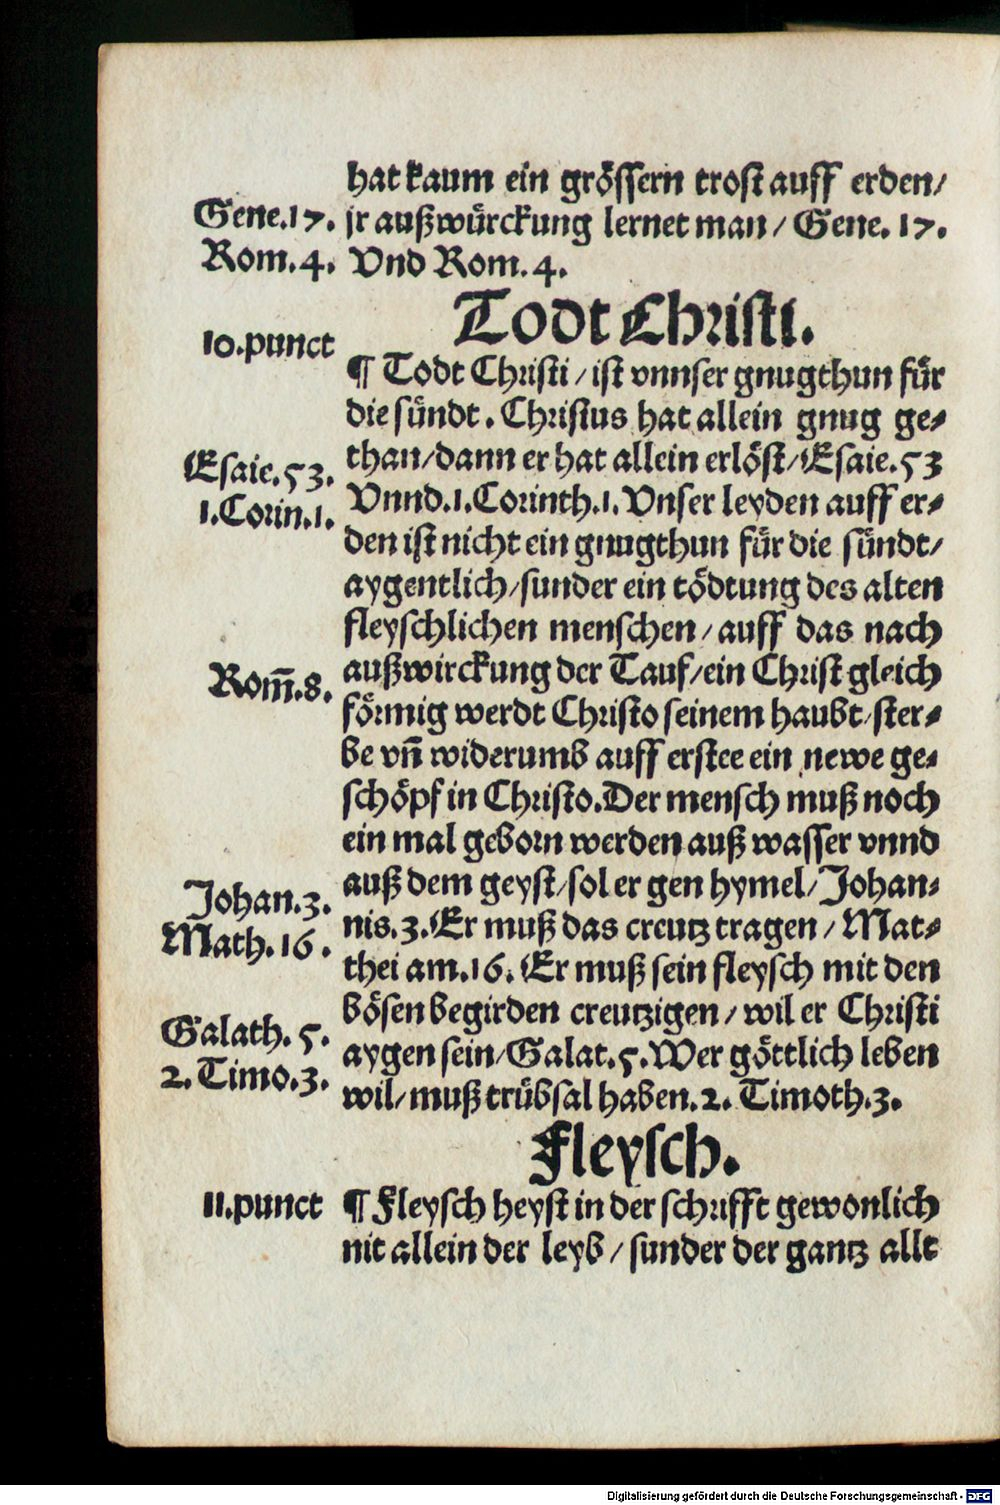 hat kaum ein grössern trost auff erden/
Gene.17. jr außwürckung lernet man / Gene. 17.
Rom.4. Vnd Rom.4.
Todt Christi.
10.punct
¶ Todt Christi / ist vnnser gnugthun für
die sündt. Christus hat allein gnug ge⸗
Esaie.53. than/dann er hat allein erlöst/Esaie.53
1.Corin.1. Vnnd.1.Corinth.1.Vnser leyden auff er⸗
den ist nicht ein gnugthun für die sündt/
aygentlich/sunder ein tödtung des alten
fleyschlichen menschen / auff das nach
Rom̄.8. außwirckung der Tauf/ein Christ gleich
förmig werdt Christo seinem haubt/ster⸗
be vn̄ widerumb auff erstee ein newe ge⸗
schöpf in Christo.Der mensch muß noch
ein mal geborn werden auß wasser vnnd
Johan.3. auß dem geyst/sol er gen hymel/Johan⸗
Math.16. nis.3.Er muß das creutz tragen / Mat⸗
thei am.16. Er muß sein fleysch mit den
bösen begirden creutzigen / wil er Christi
Galath. 5. aygen sein/Galat.5.Wer göttlich leben
2.Timo.3. wil/muß trübsal haben.2. Timoth.3.
Fleysch.
11.punct ¶ Fleysch heyst in der schrifft gewonlich
nit allein der leyb / sunder der gantz allt
Digitalisierung gefördert durch die Deutsche Forschungsgemeinschaft - DFG